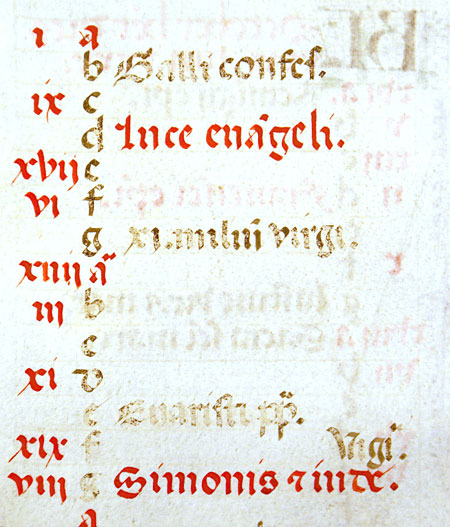 i a
b Galli confes.
ix c
d Luce eua͂geli.
xvij e
vi f
g xi. miliu͂ virgi.
xiiij a
iij b
c
xi d
e Euaristi pp̃.
xix f Vigi͂.
viij g Simonis ⁊ iude.
a